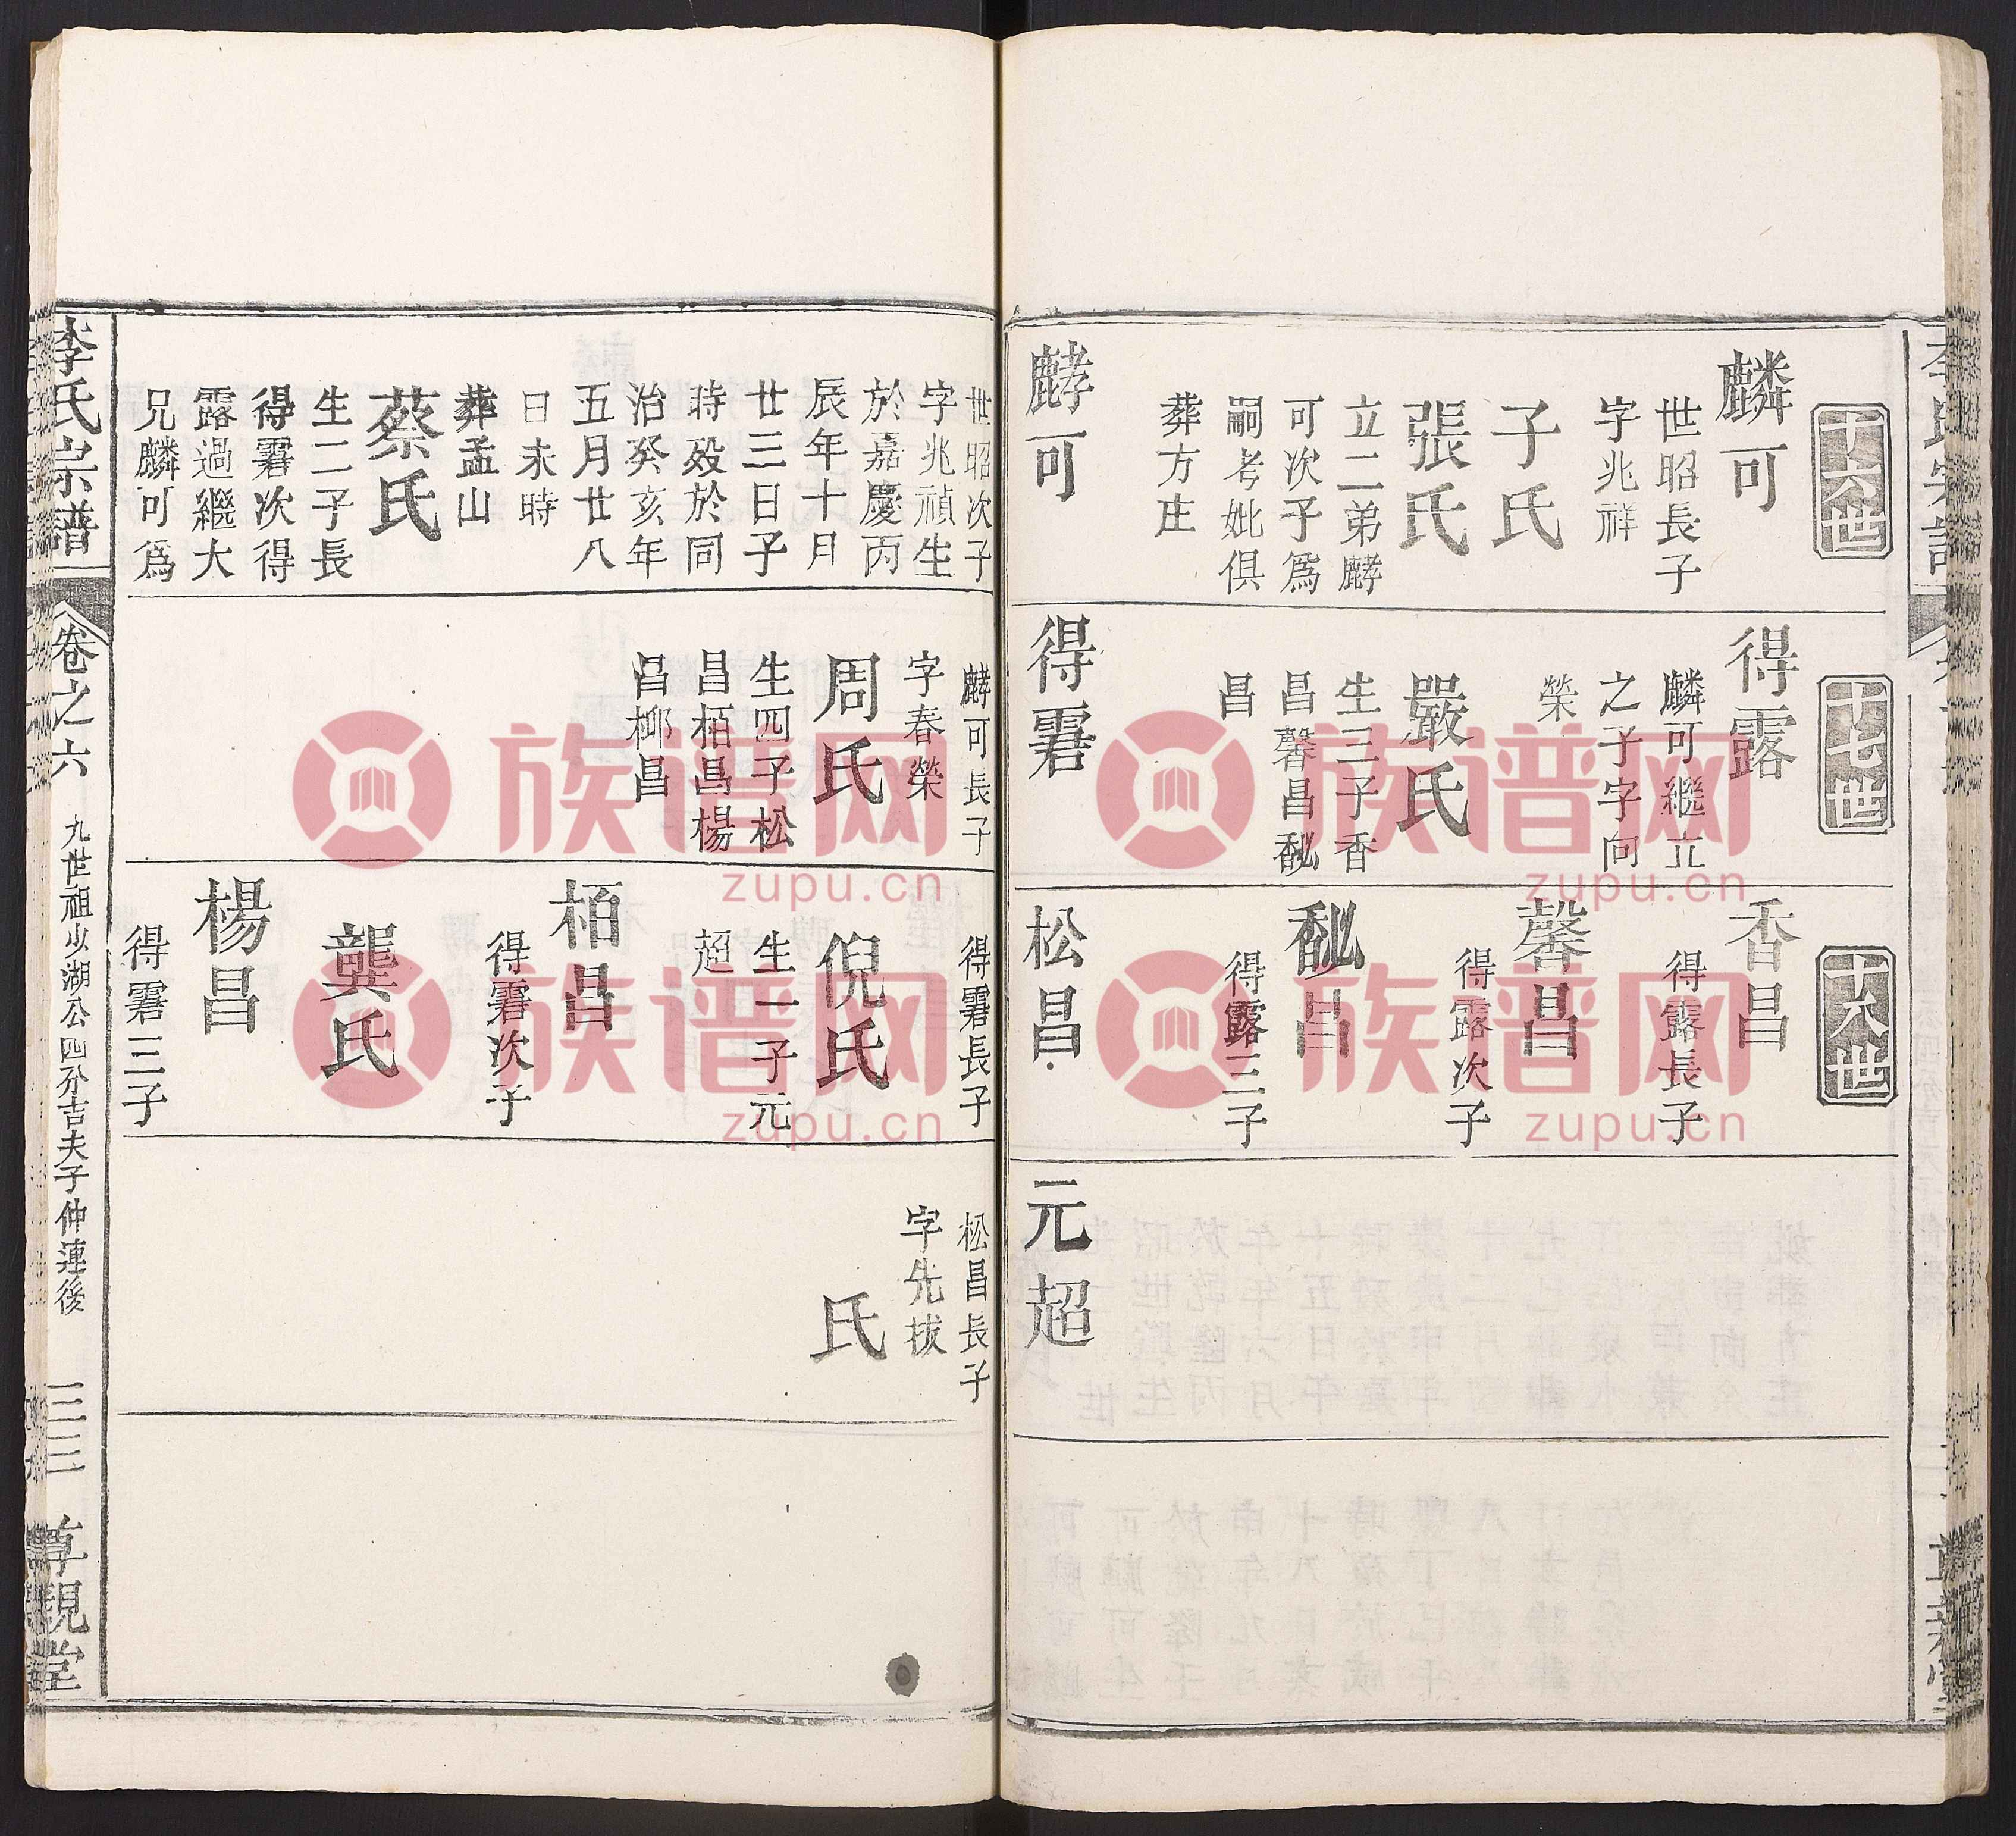 十六世
麟可
世昭長子
字兆祥
子氏
張氏
立二弟𪋡
可次子為
嗣考妣俱
葬方庄
可
十七世
得露
麟可繼立
之子字向
榮
嚴氏
生三子香
昌馨昌馝
昌
得
十八世
香昌
得露長子
馨昌
得露次子
馝昌
得露三子
松昌
元超
世昭次子
字兆禎生
於嘉慶丙
辰年十月
廿三日子
時殁於同
治癸亥年
五月廿八
日未時
葬孟山
蔡氏
生二子長
得 次得
露過繼大
兄麟可為
可長子
字春榮
周氏
生四子松
昌栢昌楊
昌栁昌
得 長子
倪氏
生一子元
超
栢昌
得 次子
龔氏
楊昌
得 三子
松昌長子
字先拔
氏
李氏宗譜
卷之六
九世祖少湖公四分吉夫子仲蓮後
三三
尊親堂
族谱网
zupu.cn
族谱网
zupu.cn
族谱网
zupu.cn
族谱网
zupu.cn